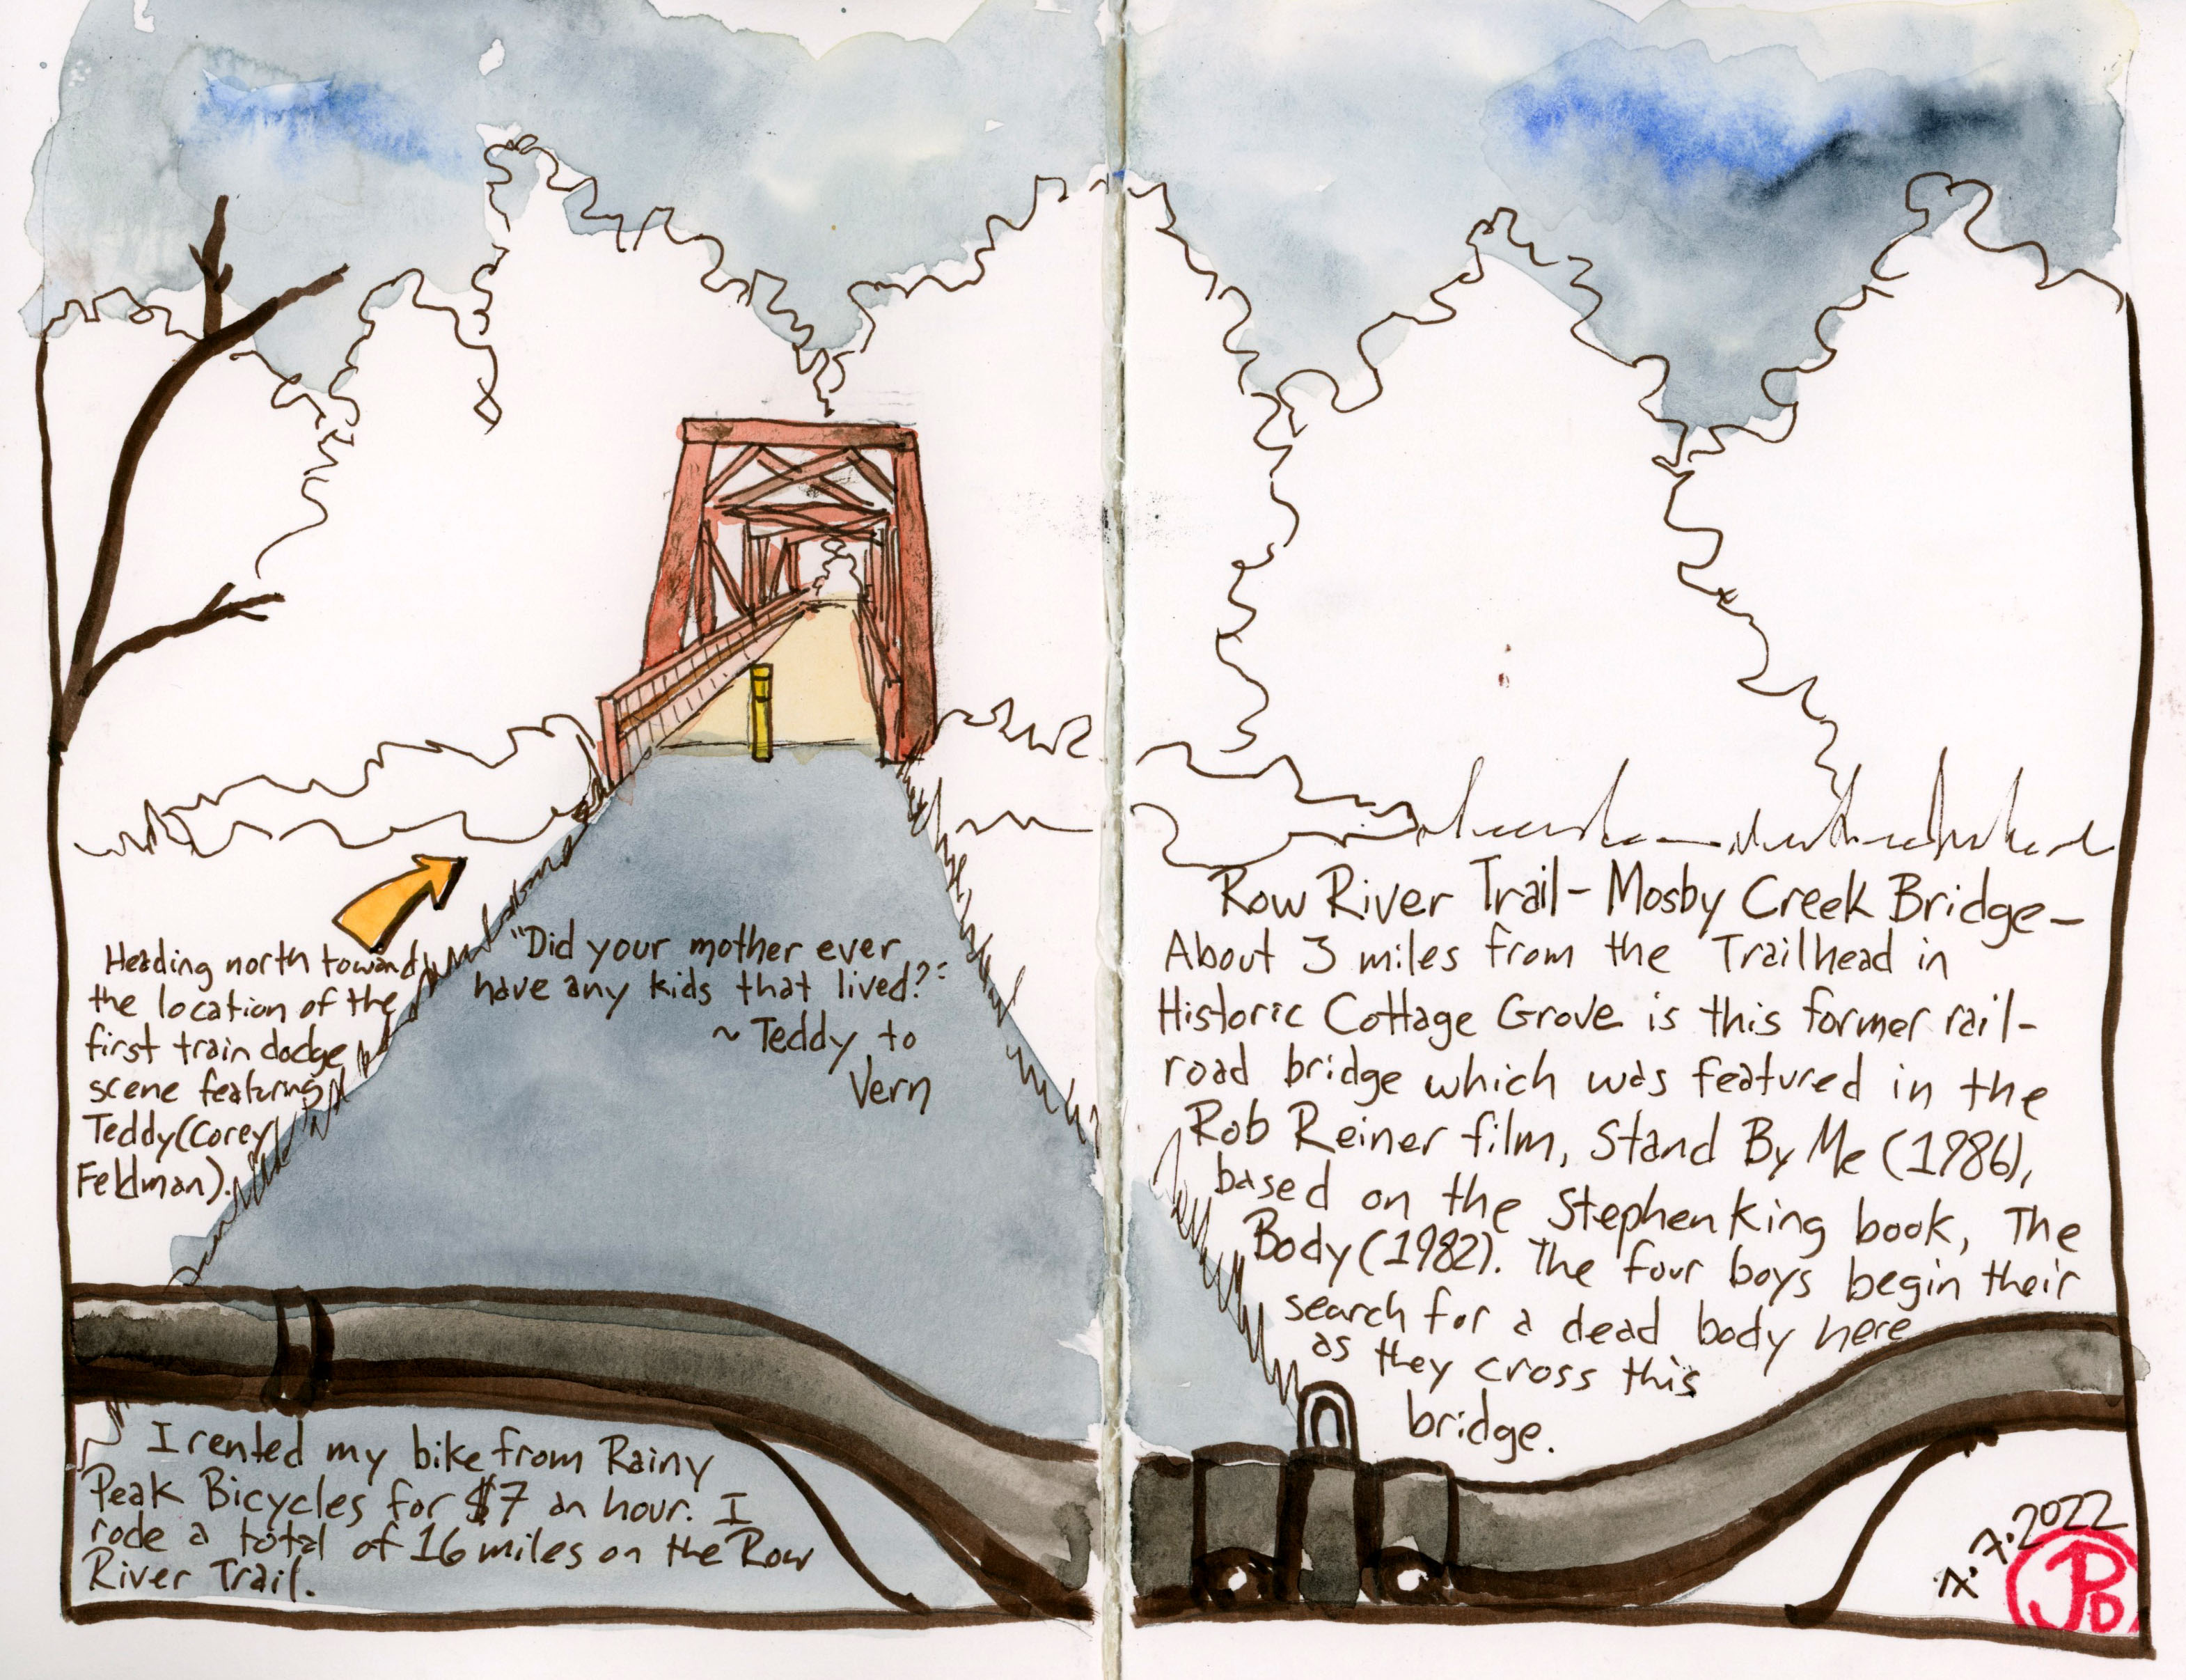 Heading north toward
the location of the
first train dodge
scene featuring
Teddy (Corey
Feldman).
"Did your mother ever
have any kids that lived?"
~ Teddy to
Vern
I rented my bike from Rainy
Peak Bicycles for $7 an hour. I
rode a total of 16 miles on the Row
River Trail.
Row River Trail - Mosby Creek Bridge -
About 3 miles from the Trailhead in
Historic Cottage Grove is this former rail-
road bridge which was featured in the
Rob Reiner film, Stand By Me (1986),
based on the Stephen King book, The
Body (1982). The four boys begin their
search for a dead body here
as they cross this
bridge.
4.7.2022
JPD